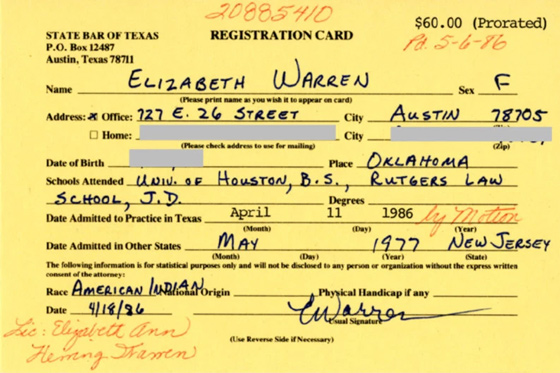 20885410
$60.00 (Prorated)
STATE BAR OF TEXAS
REGISTRATION CARD
Pd. 5-6-86
P.O. Box 12487
Austin, Texas 78711
Name ELIZABETH WARREN Sex F
(Please print name as you wish it to appear on card)
Address: x Office: 727 E. 26 STREET City AUSTIN 78705
(Zip)
☐ Home: City
(Zip)
(Please check address to use for mailing)
Date of Birth Place OKLAHOMA
Schools Attended UNIV. OF HOUSTON, B.S., RUTGERS LAW
SCHOOL, J.D. Degrees
Date Admitted to Practice in Texas April 11 1986 by Motion
(Month) (Day) (Year)
Date Admitted in Other States MAY 1977 NEW JERSEY
(Month) (Day) (Year) (State)
The following information is for statistical purposes only and will not be disclosed to any person or organization without the express written
consent of the attorney:
Race AMERICAN INDIAN National Origin Physical Handicap if any
Date 4/18/86 EWarren
Usual Signature
Lic: Elizabeth Ann
Herring Warren
(Use Reverse Side if Necessary)